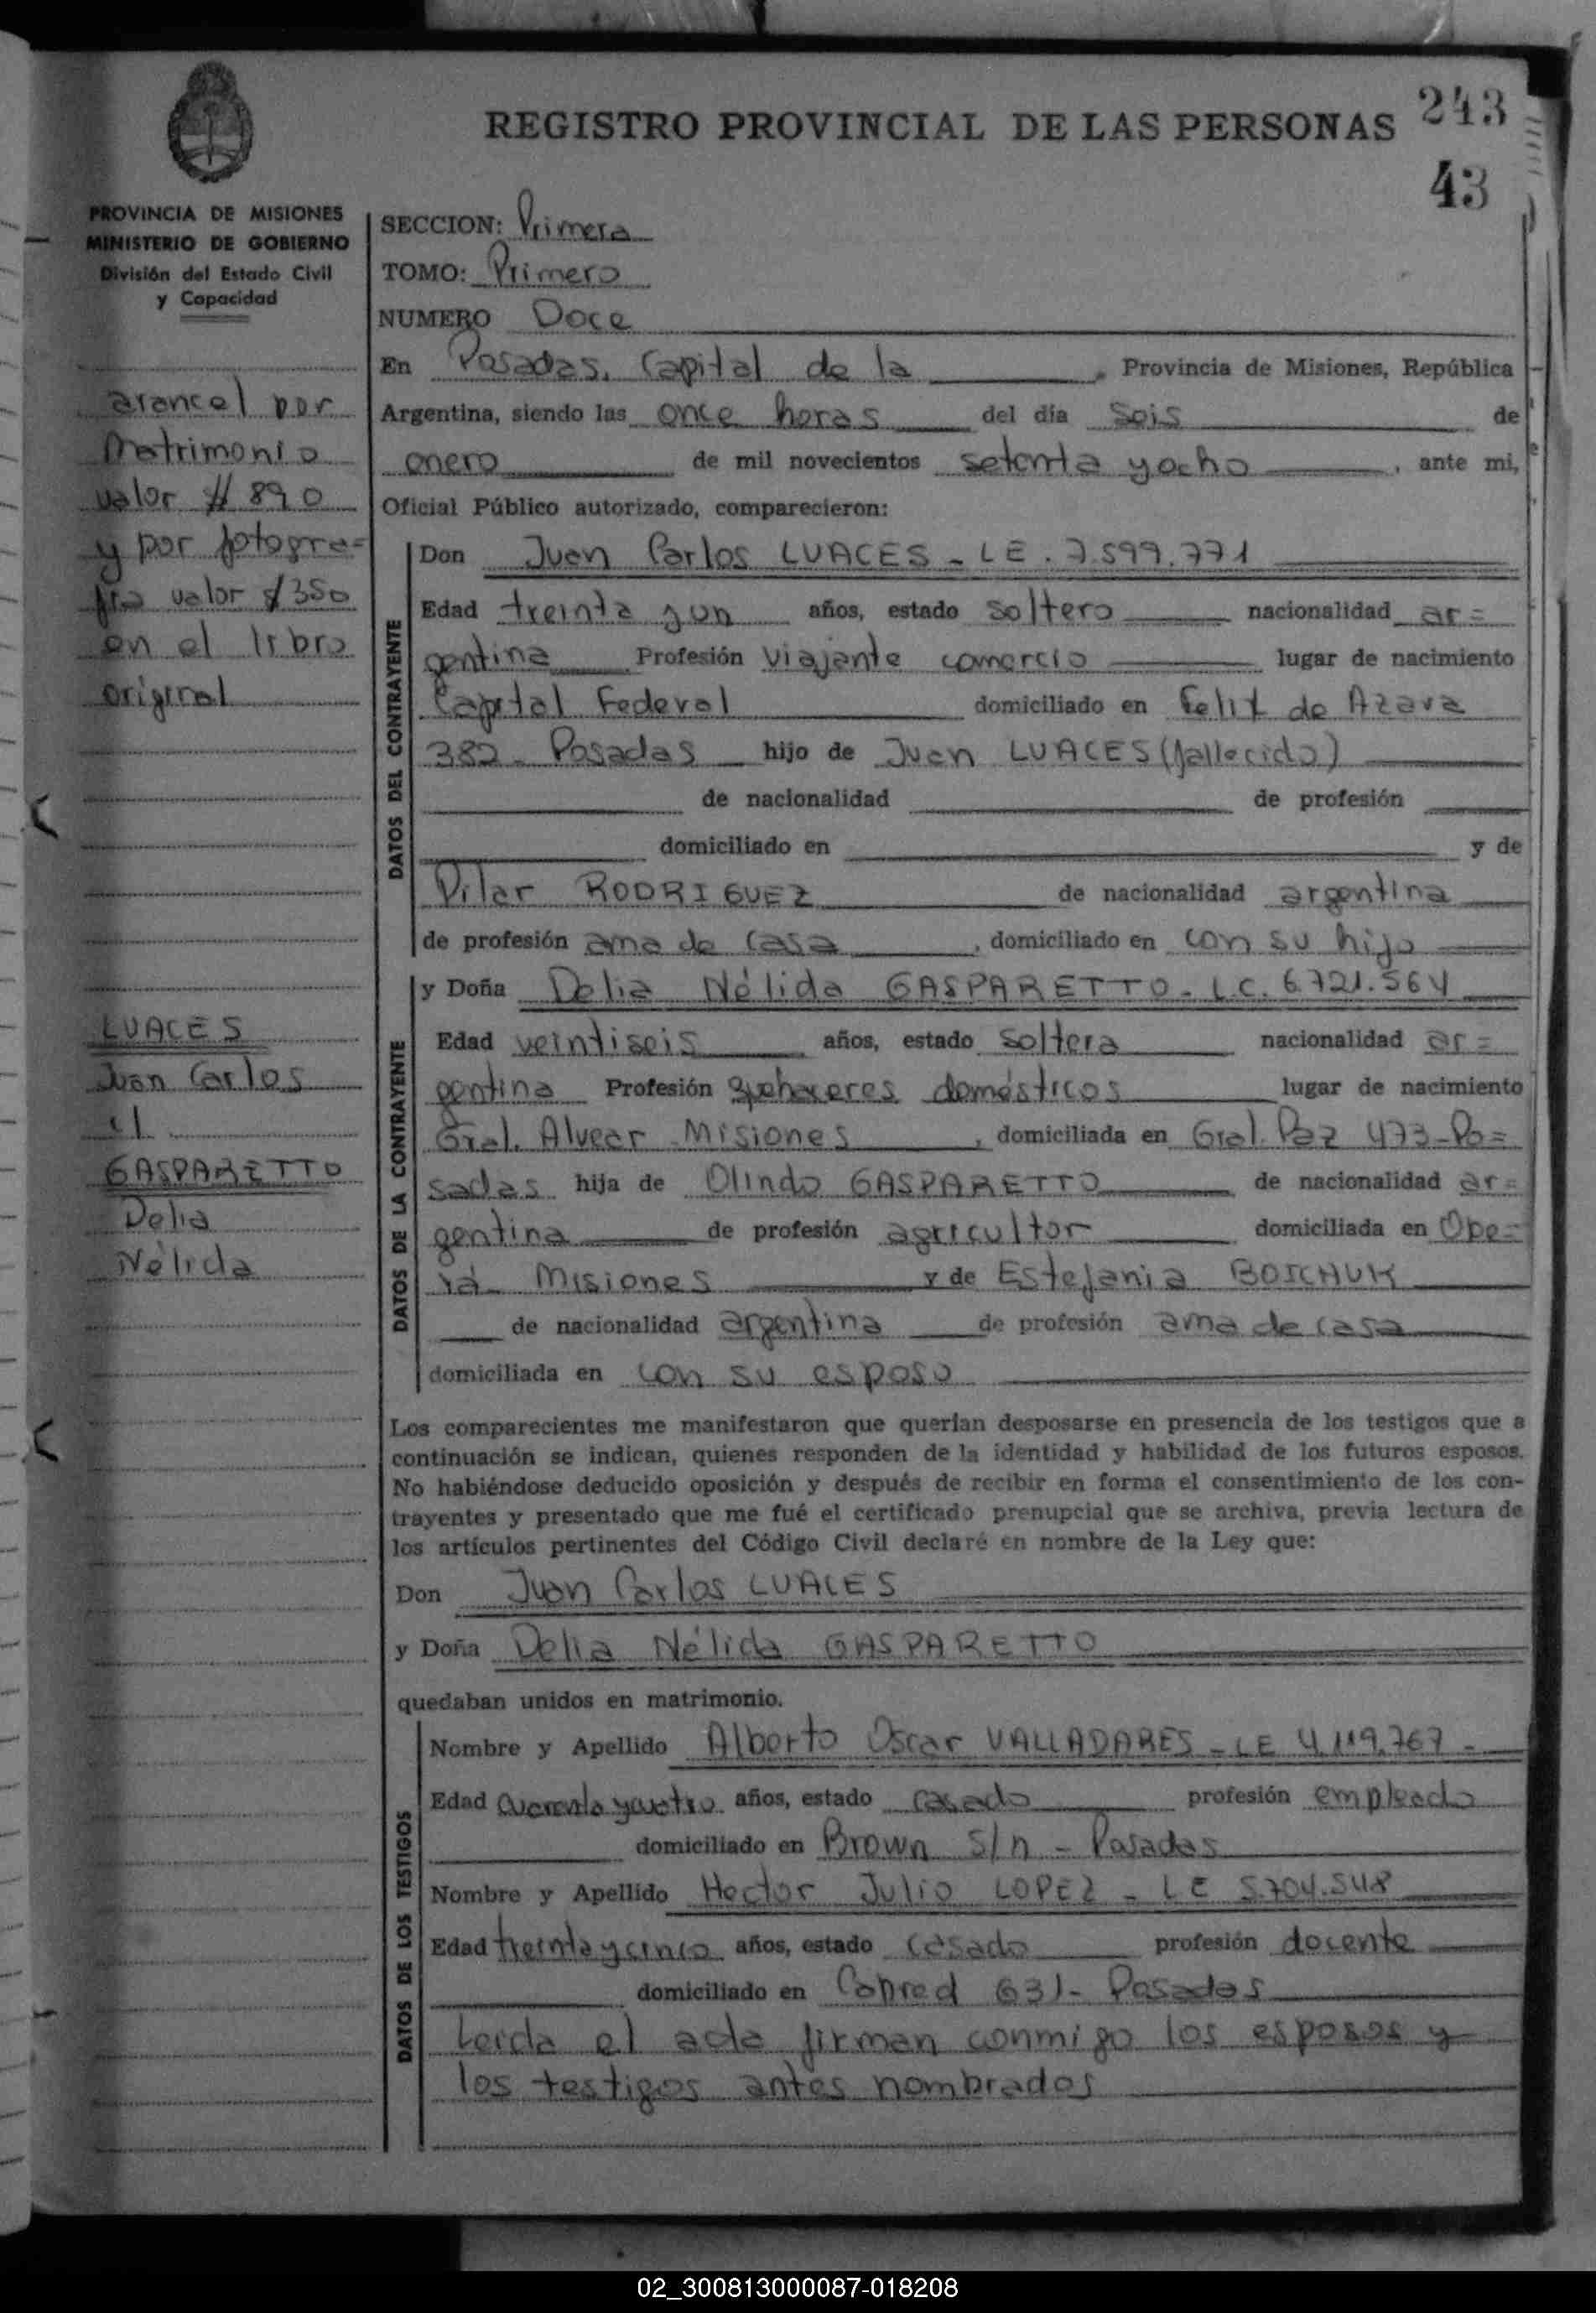 REGISTRO PROVINCIAL DE LAS PERSONAS
243
43
PROVINCIA DE MISIONES
MINISTERIO DE GOBIERNO
División del Estado Civil
y Capacidad
arancel por
Matrimonio
valor $ 890
y por fotogra=
fía valor $ 350
en el libro
original
LUACES
Juan Carlos
c/
GASPARETTO
Delia
Nélida
SECCION: Primera
TOMO: Primero
NUMERO Doce
En Posadas, Capital de la , Provincia de Misiones, República
Argentina, siendo las once horas del día seis de
enero de mil novecientos setenta y ocho , ante mi,
Oficial Público autorizado, comparecieron:
DATOS DEL CONTRAYENTE
Don Juan Carlos LUACES - LE. 7.599.771
Edad treinta y un años, estado soltero nacionalidad ar=
gentina Profesión viajante comercio lugar de nacimiento
Capital Federal domiciliado en Felix de Azara
382 - Posadas hijo de Juan LUACES (fallecido)
de nacionalidad de profesión
domiciliado en y de
Pilar RODRIGUEZ de nacionalidad argentina
de profesión ama de casa , domiciliado en con su hijo
DATOS DE LA CONTRAYENTE
y Doña Delia Nélida GASPARETTO - L.C. 6.721.564
Edad veintiseis años, estado soltera nacionalidad ar=
gentina Profesión quehaceres domésticos lugar de nacimiento
Gral. Alvear - Misiones , domiciliada en Gral. Paz 473 - Po=
sadas hija de Olindo GASPARETTO de nacionalidad ar=
gentina de profesión agricultor domiciliada en Obe=
rá - Misiones y de Estefania BOICHUK
de nacionalidad argentina de profesión ama de casa
domiciliada en con su esposo
Los comparecientes me manifestaron que querían desposarse en presencia de los testigos que a
continuación se indican, quienes responden de la identidad y habilidad de los futuros esposos.
No habiéndose deducido oposición y después de recibir en forma el consentimiento de los con-
trayentes y presentado que me fué el certificado prenupcial que se archiva, previa lectura de
los artículos pertinentes del Código Civil declaré en nombre de la Ley que:
Don Juan Carlos LUACES
y Doña Delia Nélida GASPARETTO
quedaban unidos en matrimonio.
DATOS DE LOS TESTIGOS
Nombre y Apellido Alberto Oscar VALLADARES - LE 4.119.767 -
Edad cuarenta y cuatro años, estado casado profesión empleado
domiciliado en Brown S/n - Posadas
Nombre y Apellido Hector Julio LOPEZ - LE 5.704.548
Edad treinta y cinco años, estado casado profesión docente
domiciliado en 631 - Posadas
Leida el acta firman conmigo los esposos y
los testigos antes nombrados
02_300813000087-018208